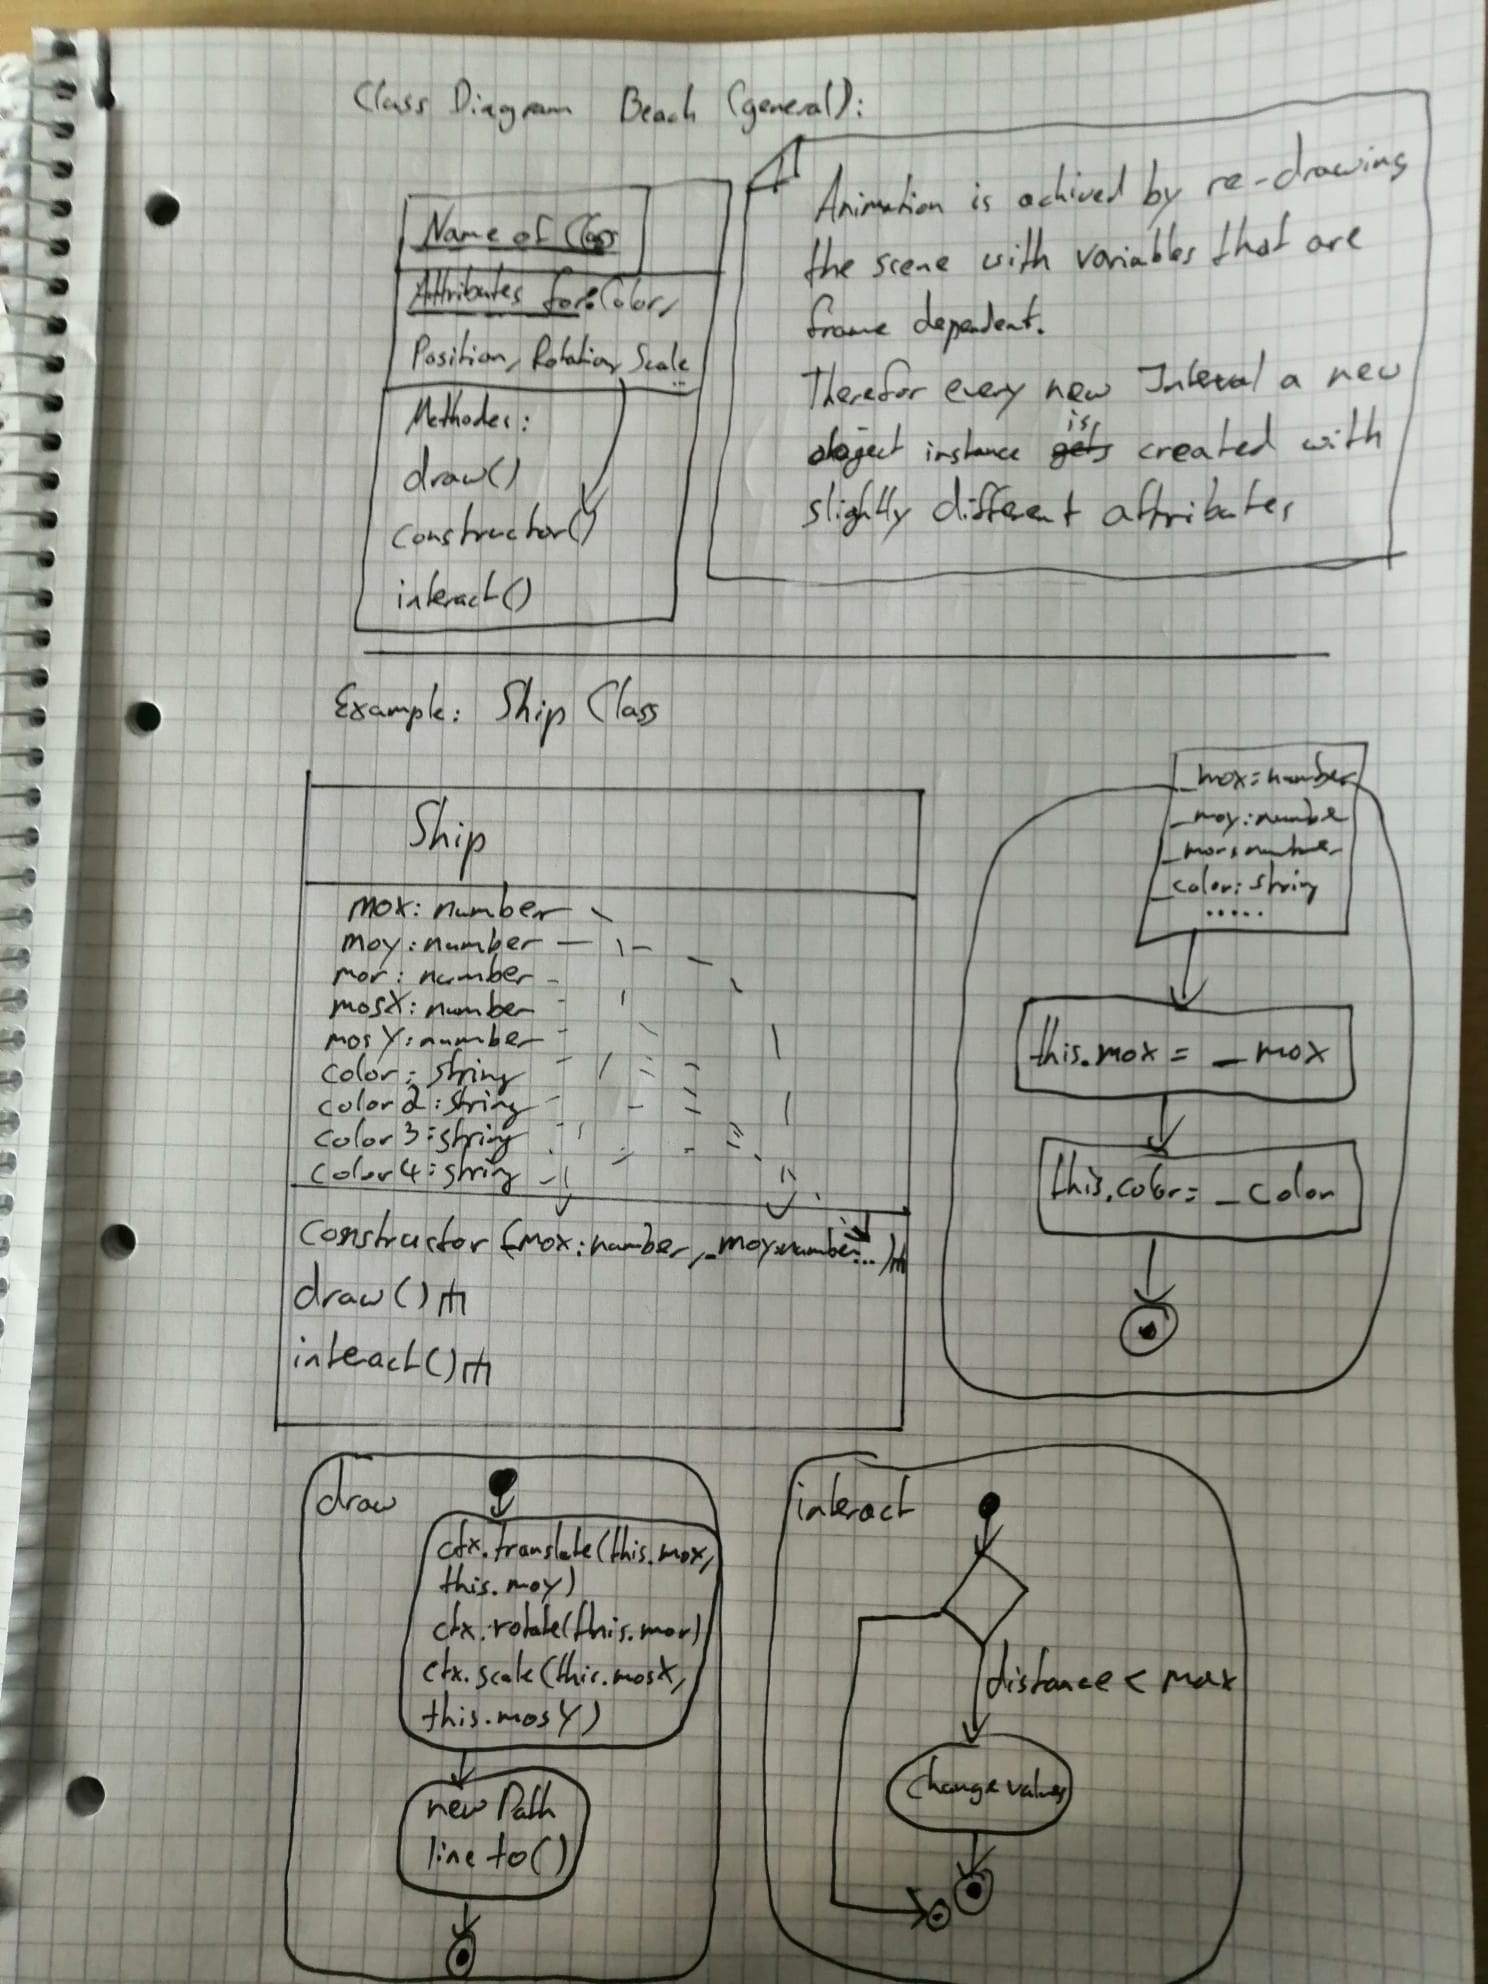 Class Diagram Beach (general):
Name of Class
Attributes for: Color,
Position, Rotation, Scale
Methodes:
draw()
constructor()
interact()
Animation is achived by re-drawing
the scene with variables that are
frame dependent.
Therefor every new Interval a new
object instance gets is created with
slightly different attributes
Example: Ship Class
Ship
mox: number
moy: number
mor: number
mosX: number
mosY: number
color: string
color2: string
color3: string
color4: string
constructor(_mox: number, _moy: number...)
draw()
interact()
_mox: number
_moy: number
_mor: number
_color: string
.....
this.mox = _mox
this.color = _color
draw
ctx.translate(this.mox,
this.moy)
ctx.rotate(this.mor)
ctx.scale(this.mosX,
this.mosY)
new Path
line to()
interact
distance < max
change values